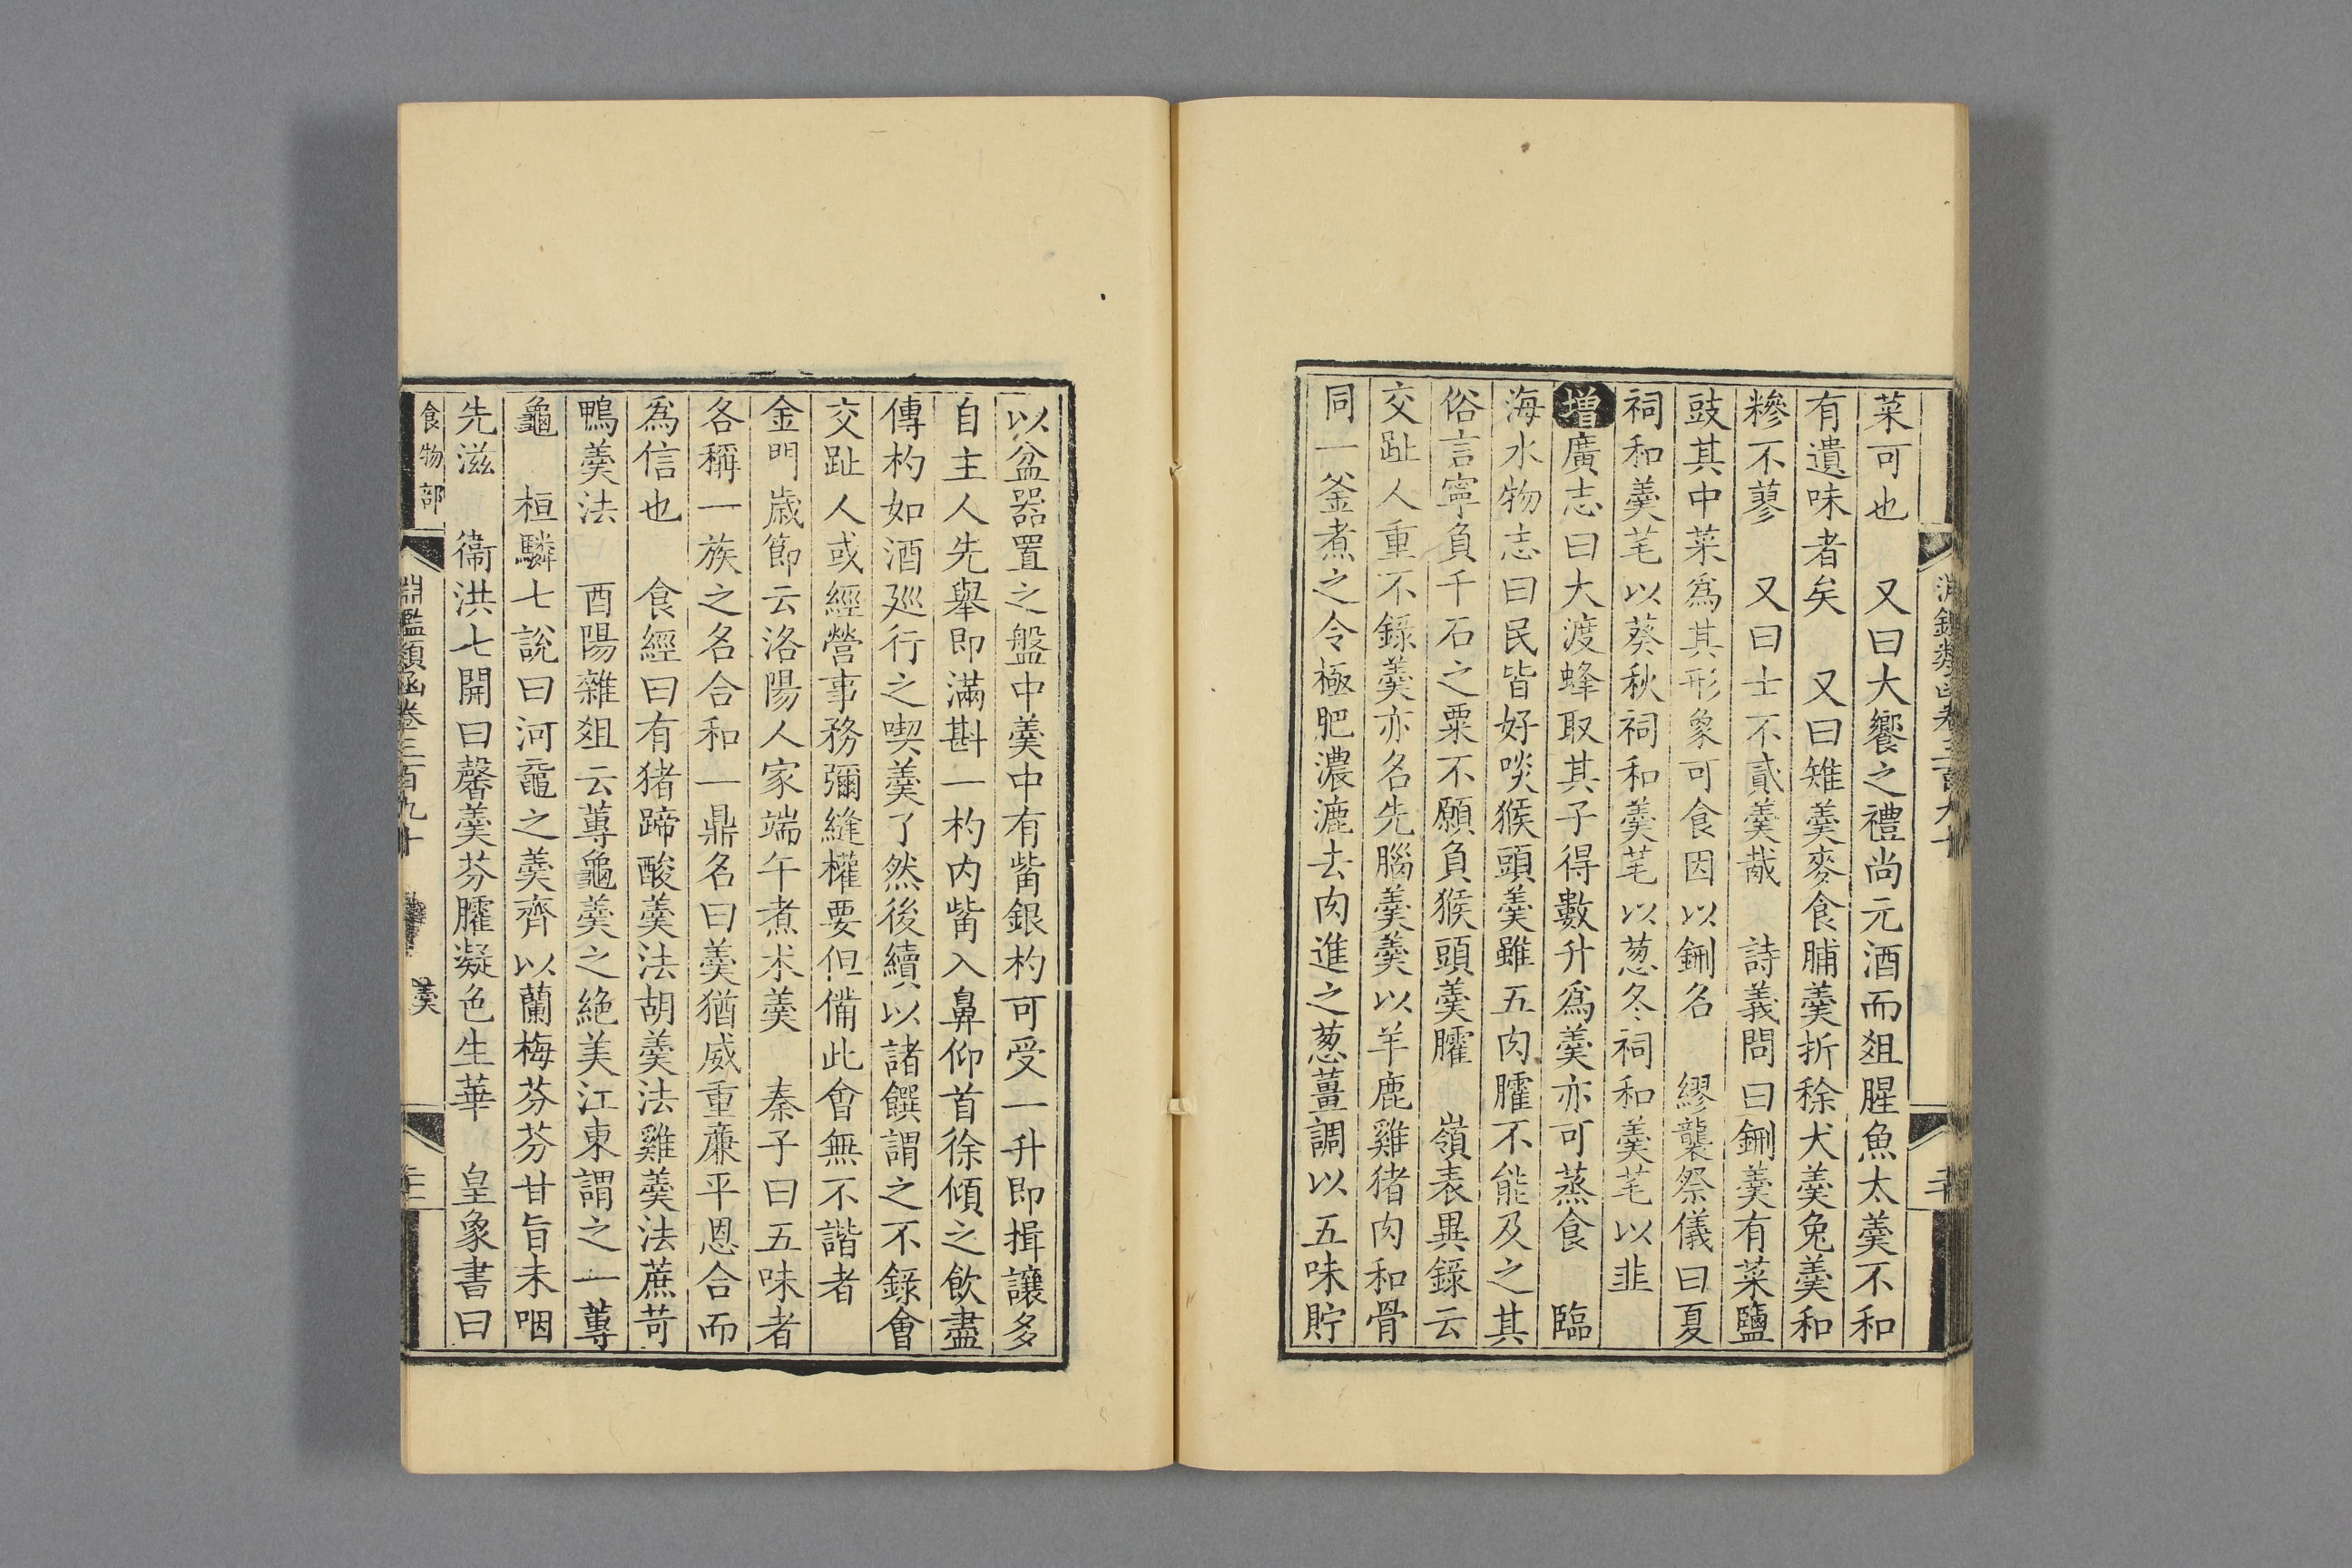 菜可也　又曰大饗之禮尚元酒而爼腥魚太羹不和
有遺味者矣　又曰雉羹麥食脯羹折稌犬羹兔羹和
糝不蓼　又曰士不貳羹胾　詩義問曰鉶羹有菜鹽
豉其中菜爲其形象可食因以鉶名　繆襲祭儀曰夏
祠和羹芼以葵秋祠和羹芼以葱冬祠和羹芼以韭
增廣志曰大渡蜂取其子得數升爲羹亦可蒸食　臨
海水物志曰民皆好啖猴頭羹雖五肉臛不能及之其
俗言寧負千石之粟不願負猴頭羹臛　嶺表異錄云
交趾人重不錄羹亦名先腦羹羹以羊鹿雞猪肉和骨
同一釜煮之令極肥濃漉去肉進之葱薑調以五味貯
以盆器置之盤中羹中有觜銀杓可受一升即揖讓多
自主人先舉即滿斟一杓内觜入鼻仰首徐傾之飲盡
傳杓如酒廵行之喫羹了然後續以諸饌謂之不錄會
交趾人或經營事務彌縫權要但備此會無不諧者
金門歲節云洛陽人家端午煮朮羹　秦子曰五味者
各稱一族之名合和一鼎名曰羹猶威重㢘平恩合而
爲信也　食經曰有猪蹄酸羹法胡羹法雞羹法蔗苛
鴨羹法　酉陽雜爼云蓴龜羹之絶美江東謂之一蓴
龜　桓驎七說曰河黿之羹齊以蘭梅芬芬甘旨未咽
先滋　衞洪七開曰馨羹芬臛凝色生華　皇象書曰
食物部　淵鑑類函卷三百九十　羹